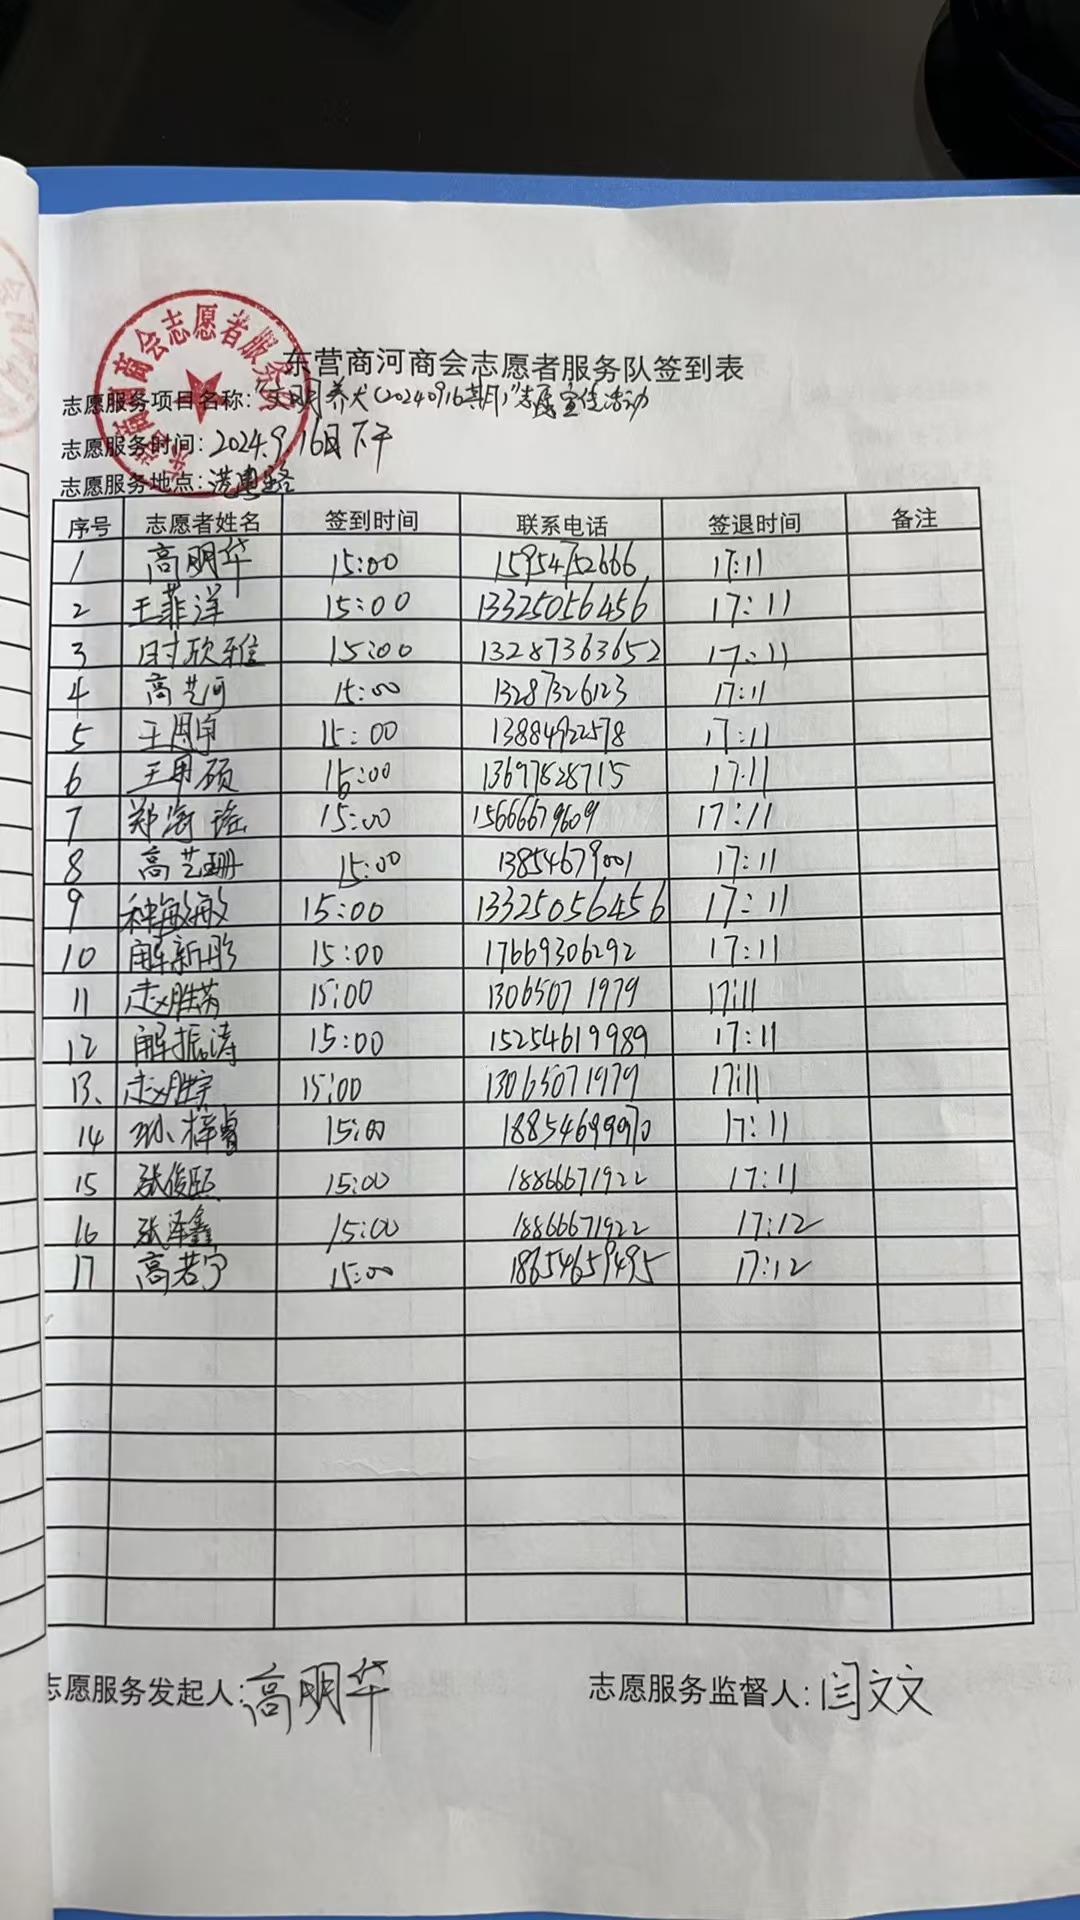 东营商河商会志愿者服务队签到表
志愿服务项目名称:"文明养犬(20240916期)"志愿宣传活动
志愿服务时间:2024.9.16日下午
志愿服务地点:
序号 志愿者姓名 签到时间 联系电话 签退时间 备注
1 高明华 15:00 15954752666 17:11
2 王菲洋 15:00 13325056456 17:11
3 时欣雅 15:00 13287363652 17:11
4 高艺河 15:00 13287326123 17:11
5 王周宇 15:00 13884922578 17:11
6 王甲硕 15:00 13697828715 17:11
7 郑海谣 15:00 15666679609 17:11
8 高艺珊 15:00 13854679001 17:11
9 种敏敏 15:00 13325056456 17:11
10 解新彤 15:00 17669306292 17:11
11 赵胜男 15:00 13065071979 17:11
12 解振涛 15:00 15254619989 17:11
13、 赵胜宇 15:00 13065071979 17:11
14 孙梓睿 15:00 18854699970 17:11
15 张俊熙 15:00 18866671922 17:11
16 张泽鑫 15:00 18866671922 17:12
17 高若宁 15:00 18654659495 17:12
志愿服务发起人:高明华 志愿服务监督人:闫文文